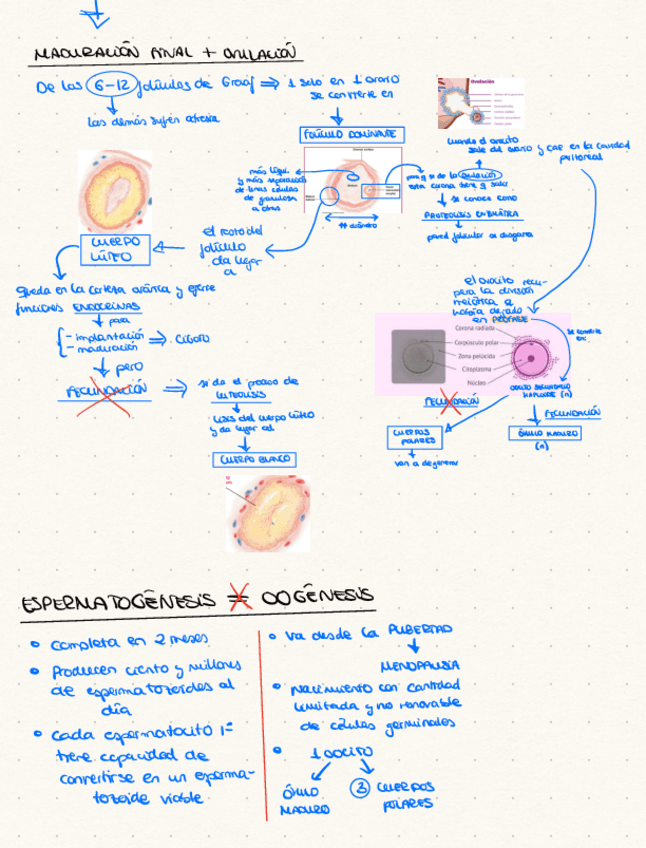 MADURACIÓN FINAL + OVULACIÓN
De las 6-12 folículos de Graaf ⇒ 1 solo en 1 ovario
se convierte en
Las demás sufren atresia
FOLÍCULO DOMINANTE
Ovulación
cuando el ovocito
sale del ovario y cae en la cavidad
peritoneal
más líqui-
y más separación
de unas células
de granulosa
a otras
↑↑ diámetro
para q se de la ovulación
esta corona tiene q salir
se conoce como
PROTEOLISIS ENZIMÁTICA
pared folicular se disgrega
el resto del
folículo
da lugar
a
CUERPO
LÚTEO
Queda en la corteza ovárica y ejerce
funciones ENDOCRINAS
para
- implantación
- maduración
⇒ cigoto
pero
FECUNDACIÓN
⇒ si da el proceso de
LUTEOLISIS
lisis del cuerpo lúteo
y da lugar al
CUERPO BLANCO
el ovocito recu-
pera la división
meiótica q
había dejado
en PROFASE
se convierte
en:
Corona radiada
Corpúsculo polar
Zona pelúcida
Citoplasma
Núcleo
OVOCITO SECUNDARIO
HAPLOIDE (n)
FECUNDACIÓN
FECUNDACIÓN
CUERPOS
POLARES
van a degenerar
ÓVULO MADURO
(n)
ESPERMATOGÉNESIS = OOGÉNESIS
• Completa en 2 meses
• Producen ciento y millones
de espermatozoides al
día
• Cada espermatocito 1º
tiene capacidad de
convertirse en un esperma-
tozoide viable
• Va desde la PUBERTAD
MENOPAUSIA
• Nacimiento con cantidad
limitada y no renovable
de células germinales
• 1 OOCITO
ÓVULO
MADURO
3 CUERPOS
POLARES